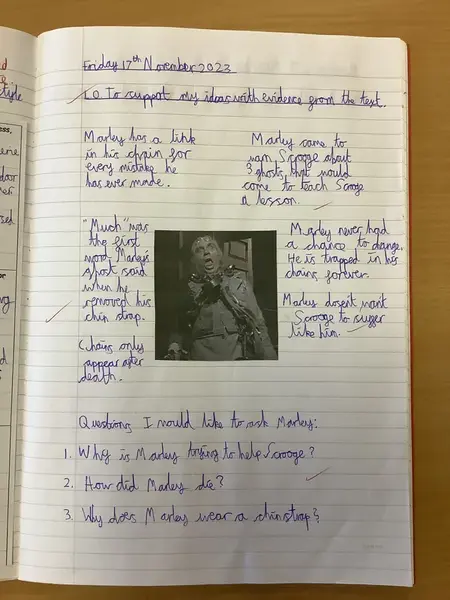 Friday 17th November 2023
LO To support my ideas with evidence from the text.
Marley has a link
in his chain for
every mistake he
has ever made.
Marley came to
warn Scrooge about
3 ghosts, that would
come to teach Scrooge
a lesson.
"Much" was
the first
word Marleys
ghost said
when he
removed his
chin strap.
Chains only
appear after
death.
Marley never had
a chance to change.
He is trapped in his
chains forever.
Marley dosen't want
Scrooge to suffer
like him.
Questions I would like to ask Marley:
1. Why is Marley trying to help Scrooge?
2. How did Marley die?
3. Why does Marley wear a chinstrap?